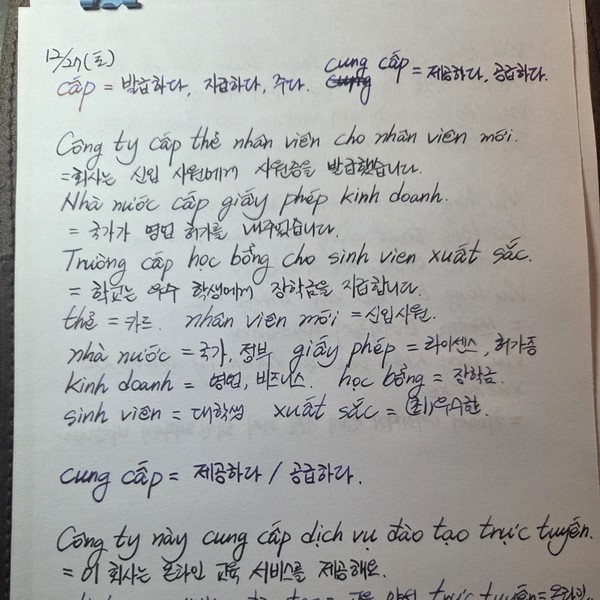 12/27(토)
cấp = 발급하다, 지급하다, 주다. cung cấp = 제공하다, 공급하다.
Công ty cấp thẻ nhân viên cho nhân viên mới.
= 회사는 신입 사원에게 사원증을 발급했습니다.
Nhà nước cấp giấy phép kinh doanh.
= 국가가 영업 허가를 내주었습니다.
Trường cấp học bổng cho sinh vien xuất sắc.
= 학교는 우수 학생에게 장학금을 지급합니다.
thẻ = 카드. nhân viên mới = 신입사원.
nhà nước = 국가, 정부 giấy phép = 라이센스, 허가증
kinh doanh = 영업, 비즈니스. học bổng = 장학금.
sinh viên = 대학생 xuất sắc = (최)우수한.
cung cấp = 제공하다 / 공급하다.
Công ty này cung cấp dịch vụ đào tạo trực tuyến.
= 이 회사는 온라인 교육 서비스를 제공해요.
trực tuyến = 온라인